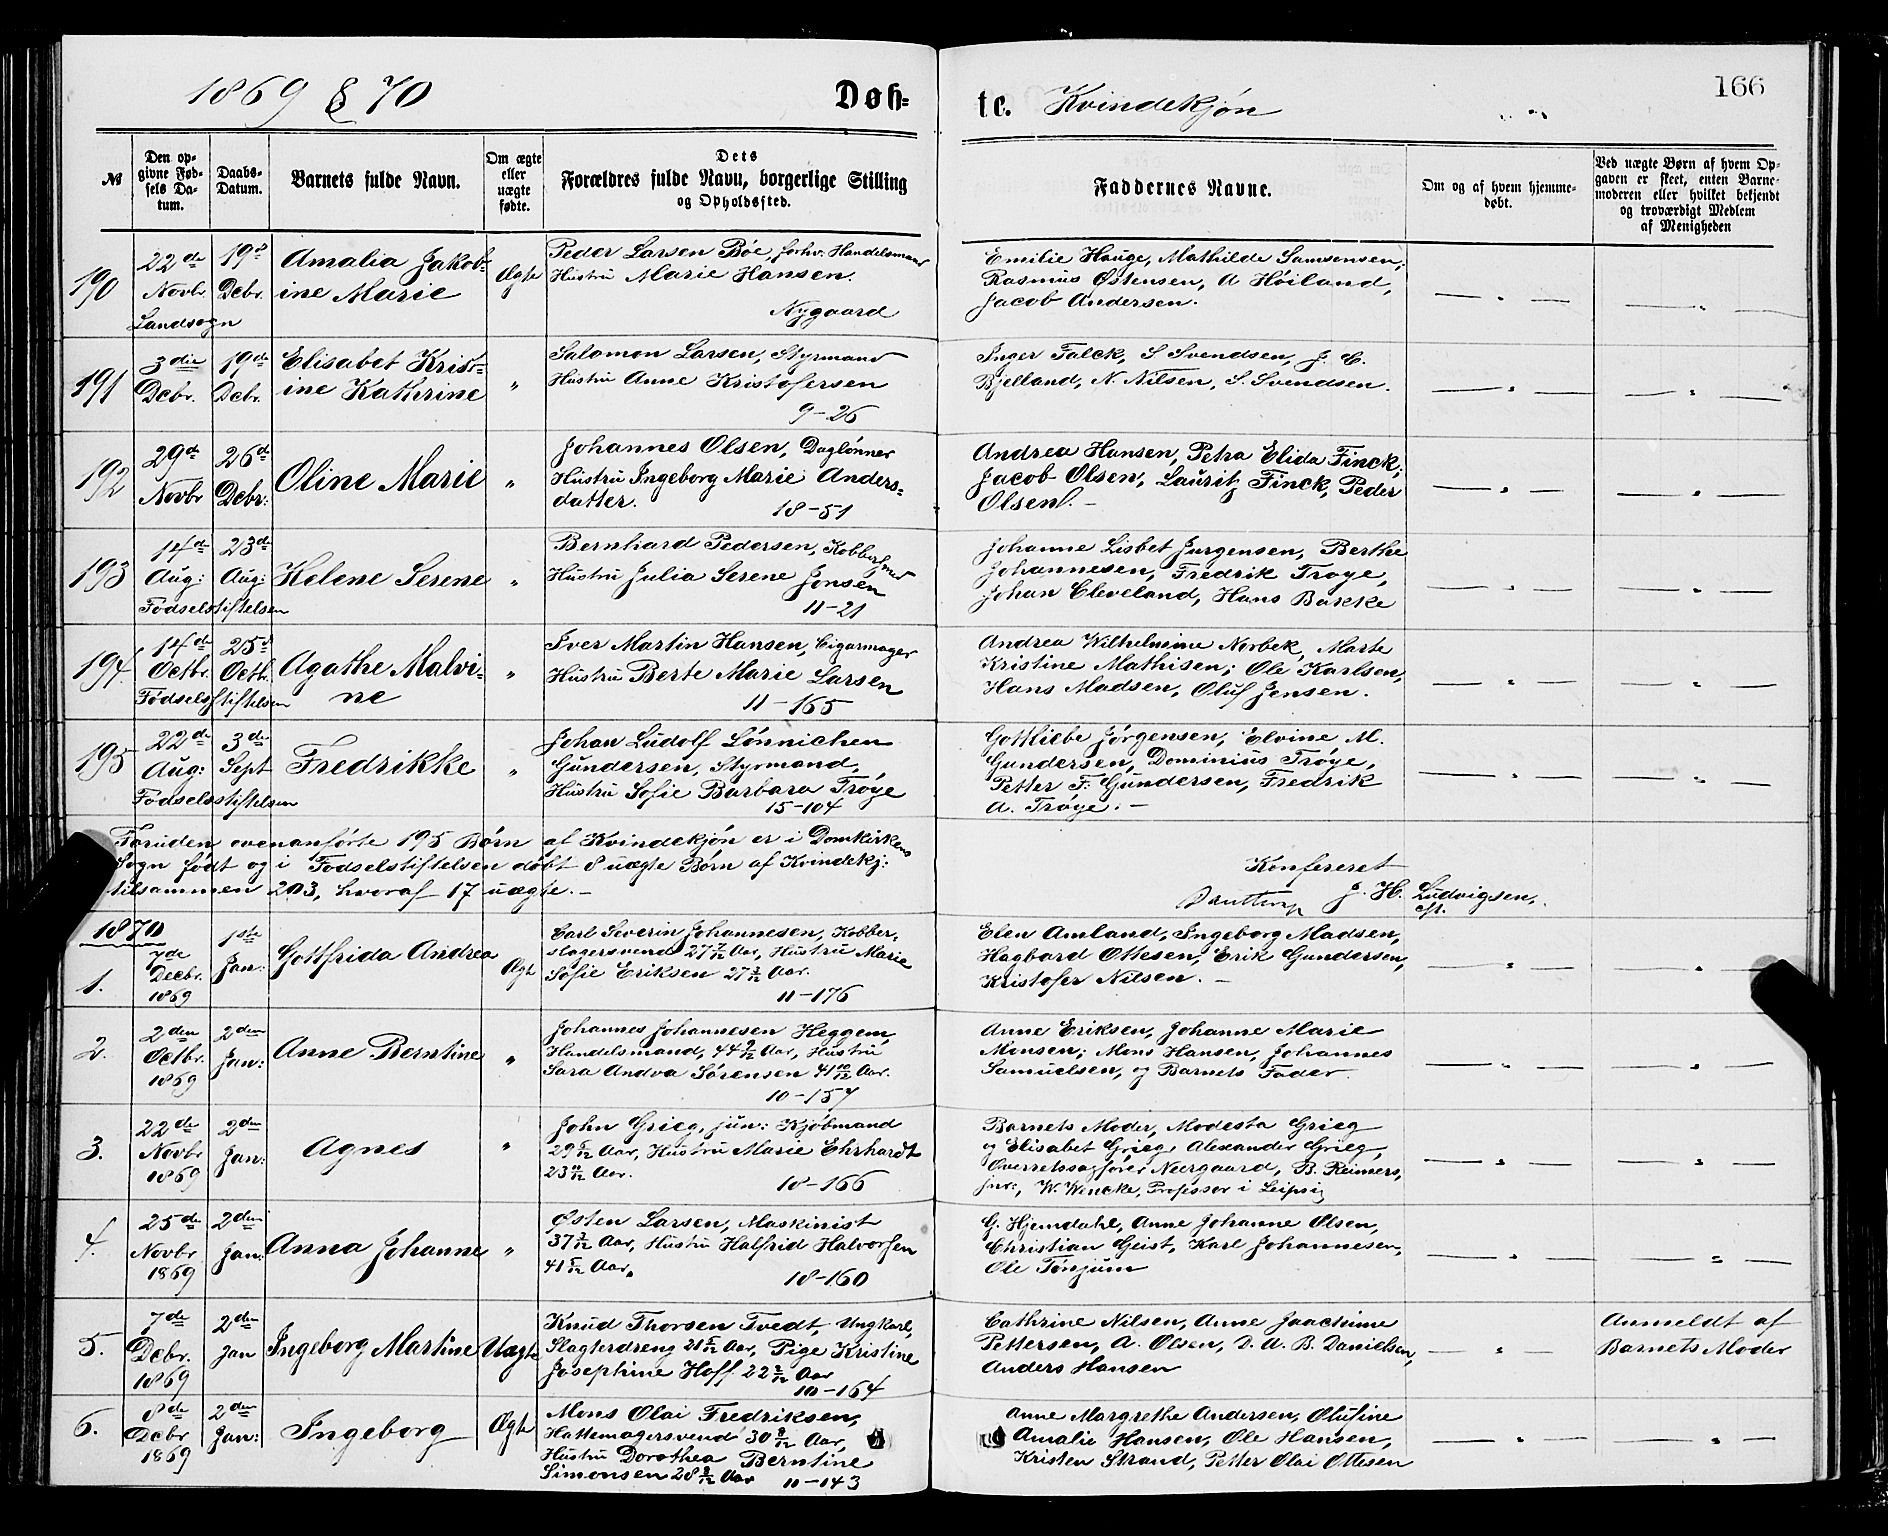 1869 & 70
Døb-
te. Kvindekjøn
166
№
Den op-
givne Fød-
sels Da-
tum.
Daabs-
Datum.
Barnets fulde Navn.
Om ægte
eller
uægte
fødte.
Dets
Forældres fulde Navn, borgerlige Stilling
og Opholdssted.
Faddernes Navne.
Om og af hvem hjemme-
døbt.
Ved uægte Børn af hvem Op-
gaven er skeet, enten Barne-
moderen eller hvilket bekjendt
og troværdigt Medlem
af Menigheden
190
22de
Novbr.
Landsogn
19de
Debr.
Amalia Jakob-
ine Marie
Ægte
Peder Larsen Bøe, forhv. Handelsmand
Hustru Marie Hansen.
Nygaard
Emilie Hauge, Mathilde Samsonsen;
Rasmus Østensen, A Høiland,
Jacob Andersen.
191
3die
Debr.
19de
Debr.
Elisabet Krist-
ine Kathrine
"
Salomon Larsen, Styrmand
Hustru Anne Kristofersen
9-26
Inger Falck, S Svendsen, J. C.
Bjelland, N. Nilsen, S. Svendsen.
192
29de
Novbr
26de
Debr:
Oline Marie
"
Johannes Olsen, Daglønner
Hustru Ingeborg Marie Anders-
datter.
18-51
Andrea Hansen, Petra Elida Finck;
Jacob Olsen, Lauritz Finck, Peder
Olsen.
193
14de
Aug:
Fødselsstiftelsen
23de
Aug:
Helene Serene
"
Bernhard Pedersen, Kobbersmed
Hustru Julia Serene Jonsen
11-21
Johanne Lisbet Jurgensen, Berthe
Johannesen, Fredrik Troye,
Johan Cleveland, Hans Bakke
194
14de
Octbr.
Fødselsstiftelsen
25de
Octb.
Agathe Malvi-
ne
"
Iver Martin Hansen, Cigarmager
Hustru Berte Marie Larsen
11-165
Andrea Wilhelmine Norbek, Marte
Kristine Mathisen; Ole Karlsen,
Hans Madsen, Oluf Jensen.
195
22de
Aug:
Fødselsstiftelsen
3de
Sept
Fredrikke
"
Johan Ludolf Lønnichen
Gundersen, Styrmand,
Hustru Sofie Barbara Trøye
15-104
Gottliebe Jørgensen, Elvine M.
Gundersen, Dominius Trøye,
Petter F. Gundersen, Fredrik
A. Trøye.
Foruden ovenanførte 195 Børn af Kvindekjøn er i Domkirkens
Sogn født og i Fødselstiftelsen døbt 8 uægte Børn af Kvindekj:
tilsammen 203, hvoraf 17 uægte.
Konfereret
J. H. Ludvigsen,
1870
1.
7de
Decbr.
1869
1ste
Jan:
Gottfrida Andrea
Ægt
Carl Severin Johannesen, Kobber-
slagersvend 27 7/12 Aar, Hustru Marie
Sofie Eriksen 27 3/12 Aar.
11-176
Elen Amland, Ingeborg Madsen,
Hagbard Ottesen, Erik Gundersen,
Kristofer Nilsen.
2.
2den
Octbr.
1869
2den
Jan:
Anne Berntine
"
Johannes Johannesen Heggem,
Handelsmand, 44 9/12 Aar, Hustru
Sara Andva Sørensen 41 10/12 Aar.
10-157
Anne Eriksen, Johanne Marie
Monsen; Mons Hansen, Johannes
Samuelsen, og Barnets Fader.
3.
22de
Novbr
1869
2den
Jan:
Agnes
"
John Grieg, jun: Kjøbmand
29 6/12 Aar, Hustru Marie Ehrhardt
23 Aar.
18-166
Barnets Moder, Modesta Grieg
og Elisabet Grieg, Alexander Grieg,
Overretssagfører Neergaard, B. Reimers,
jnr:, W. Wencke, Professor i Leipsig
4.
25de
Novbr
1869
2den
Jan:
Anna Johanne
"
Østen Larsen, Maskinist
37 3/12 Aar, Hustru Halfrid Halvorsen
41 Aar.
18-160
G. Hjemdahl, Anne Johanne Olsen,
Christian Geist, Karl Johannesen,
Ole Tønjum
5.
7de
Debr.
1869
2den
Jan
Ingeborg Martine
Uægte
Knud Thorsen Tvedt, Ungkarl,
Slagterdreng 21 Aar, Pige Kristine
Josephine Hoff 22 2/12 Aar
10-164
Cathrine Nilsen, Anne Joachime
Pettersen, A. Olsen, D. A. B. Danielsen,
Anders Hansen
Anmeldt af
Barnets Moder
6.
8de
Debr
1869
2den
Jan:
Ingeborg
Ægte
Mons Olai Fredriksen,
Hattemagersvend 30 8/12 Aar,
Hustru Dorothea Berntine
Simonsen 28 9/12 Aar
10-143
Anne Margrethe Andersen, Olufine
Amalie Hansen, Ole Hansen,
Kristen Strand, Petter Olai Ottesen